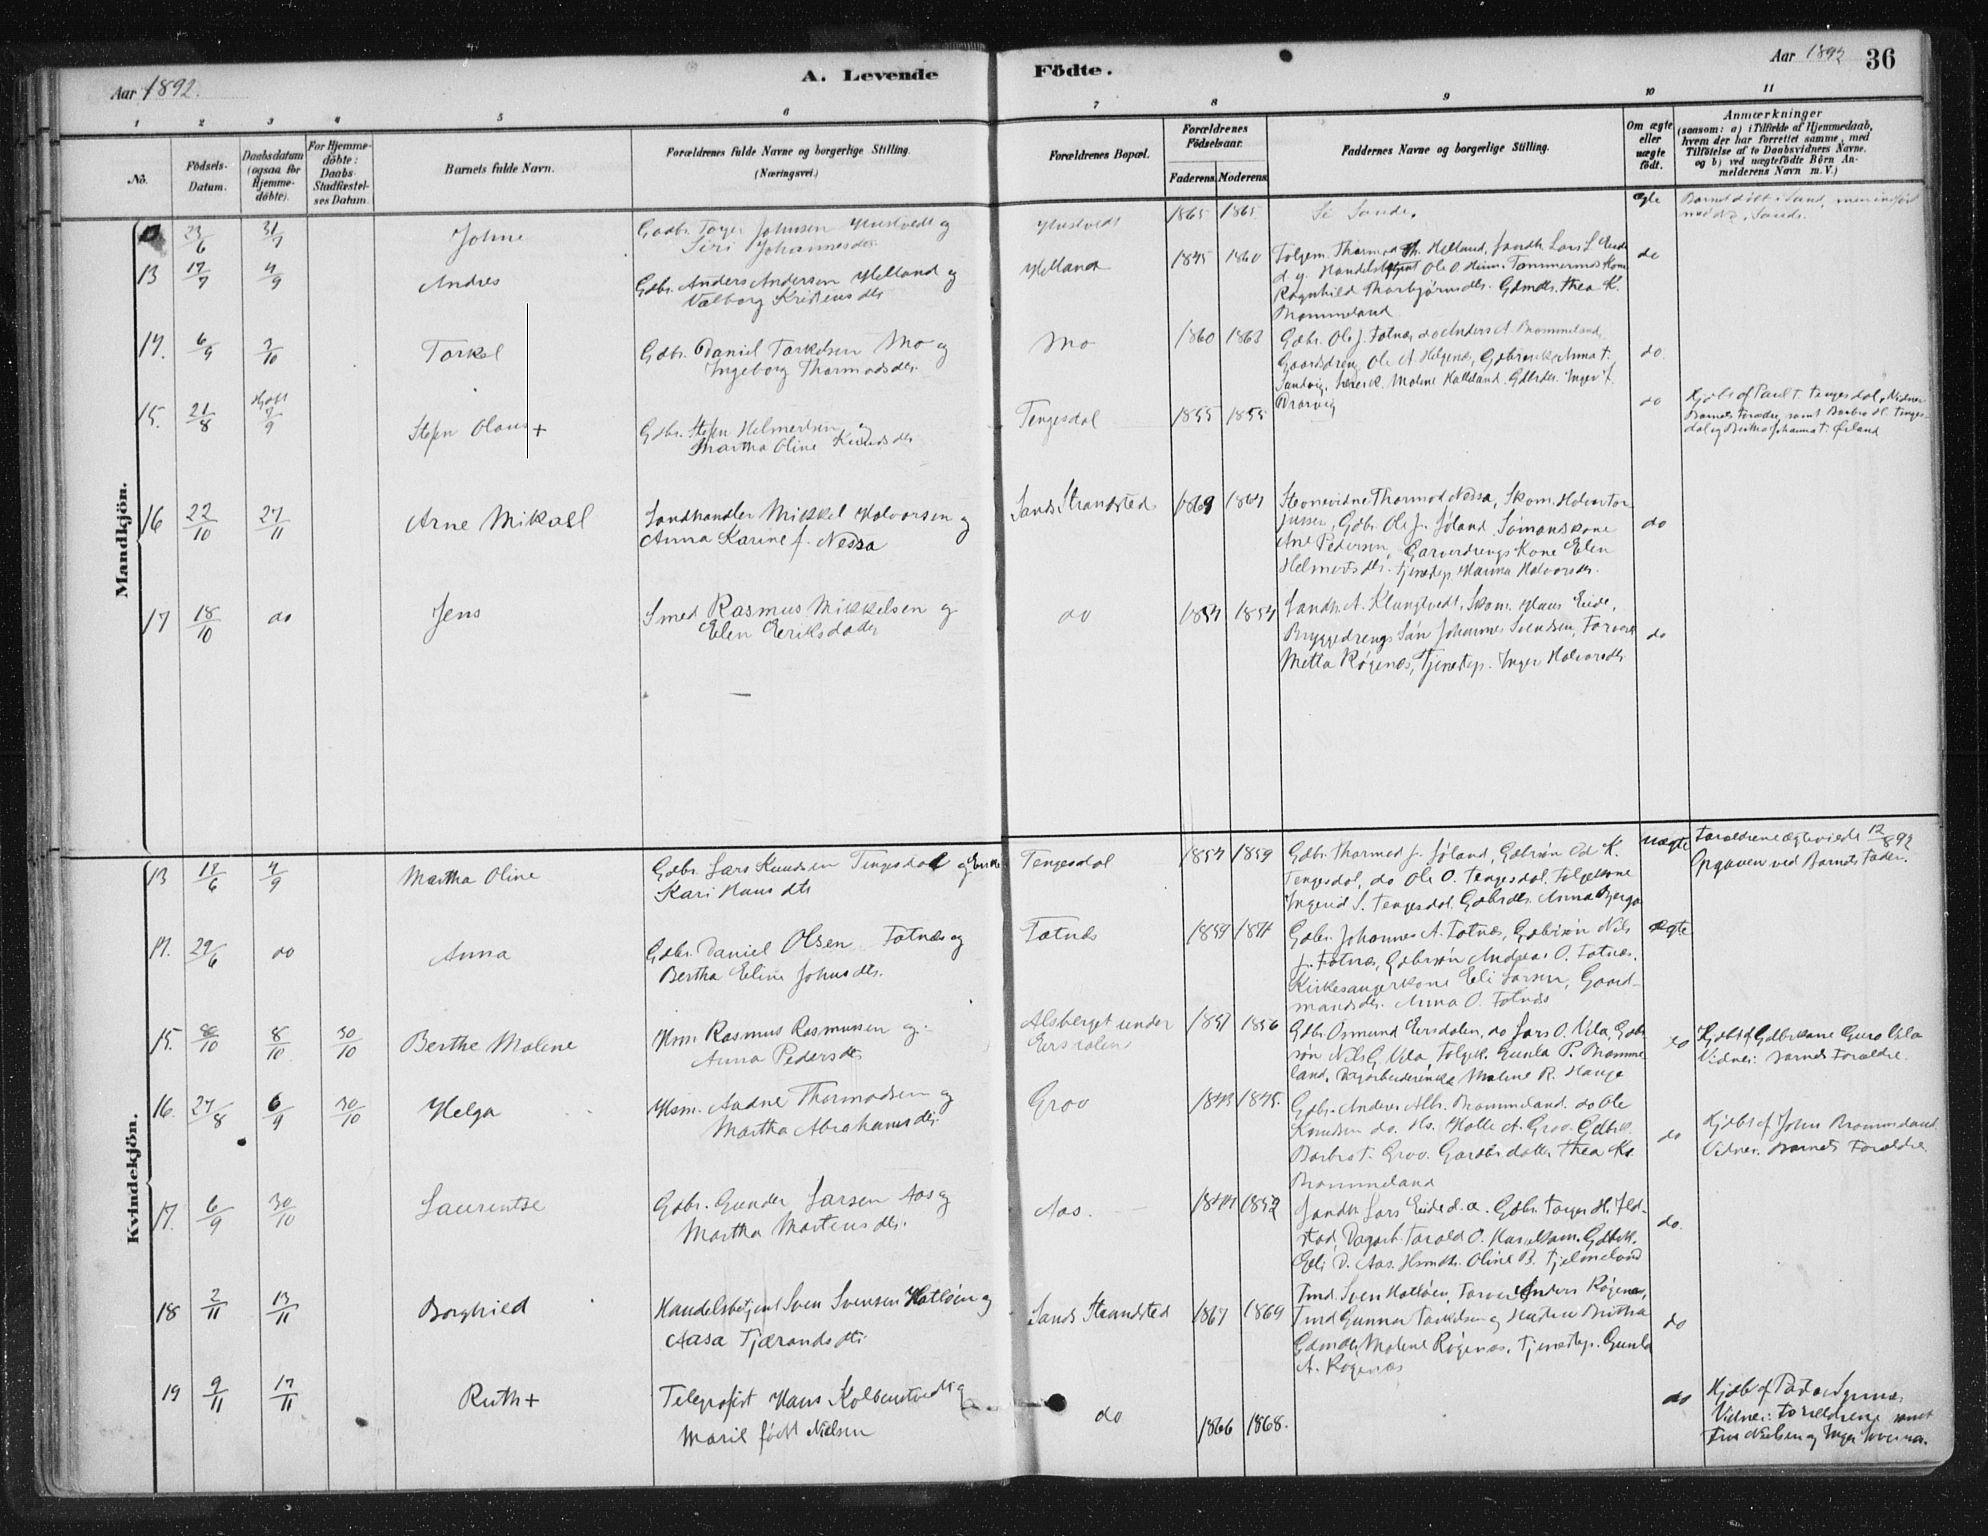 Aar 1892.
A. Levende Födte.
Aar 1892 36
1 2 3 4 5 6 7 8 9 10 11
No.
Födsels-
Datum.
Daabsdatum
(ogsaa for
Hjemme-
döbte).
For Hjemme-
döbte:
Daabs-
Stadfæstel-
ses Datum.
Barnets fulde Navn.
Forældrenes fulde Navne og borgerlige Stilling.
(Næringsvei.)
Forældrenes Bopæl.
Forældrenes
Födselsaar.
Faderens. Moderens.
Faddernes Navne og borgerlige Stilling.
Om ægte
eller
uægte
födt.
Anmærkninger
(saasom: a) i Tilfælde af Hjemmedaab,
hvem der har forrettet samme, med
Tilföielse af to Daabsvidners Navne.
og b) ved uægtefödte Börn An-
melderens Navn m. V.)
Mandkjön.
23/6 31/7 Johne
Gadbr. Torger Johnsen Hustvedt og
Siri Johannesdtr.
Hustvedt 1865 1865 Se Sande. ægte
13 17/7 4/9 Andres
Gdbr. Anders Andersen Helland og
Valborg Kristensdtr
Helland 1845 1860
Folgem. Thormod Th. Helland, Landh. Lars L. Eide
d.y. Handelsbetjent Ole O. Hiim. Tømmermds Kone
Ragnhild Thorbjørnsdtr. Gdmdtr. Thea K.
Brommeland
do
14. 6/9 2/10 Torkel
Gdbr. Daniel Torkelsen Mo og
Ingeborg Thormodsdtr.
Mo 1860 1863
Gdbr. Ole J. Fatnæs, do Anders A. Brommeland,
Gaardsdreng Ole A. Helgenæs, Anna T.
Sandvig, Malene Halleland. Gdbrdtr. Inger J.
Drarvig
do.
15. 21/8 Hjdbt 7/9 Stefen Olaus +
Gdbr. Stefen Helmertsen og
Martha Oline Knudsdtr
Tengesdal 1855 1855 do
Hjdbt af Paul T. Tengesdal, Vidner
Barnets Forældre, samt Barbro H. Tenges-
dal og Johanna T. Ørland
16 22/10 27/11 Arne Mikael
Landhandler Mikkel Halvorsen og
Anna Karine f. Nessa
Sands Strandsted 1869 1864
Stevnevidne Thormod Nessa, Skom. Halvor Tor
jussen, Gdbr. Ole J. Løland, Sømandskone
Ane Pedersen, Garverdrengs Kone Elen
Helmertsdtr. Tjenestep. Marina Halvorsdtr.
do
17 18/10 do Jens
Smed Rasmus Mikkelsen og
Elen Eeriksdater
do 1854 1854
Landh. A. Klungtvedt, Skom. Hans Eide,
Bryggedrengs Søn Johannes Svendsen, Farver
Metta Røgenæs, Tjenestep. Inger Halvorsdtr.
do
Kvindekjön.
13 11/6 4/9 Martha Oline
Gdbr. Lars Knudsen Tengesdal og Enke
Kari Hansdtr
Tengesdal 1854 1859
Gdbr. Thormod J. Løland, Gdbrsøn Ole K.
Tengesdal, do Ole O. Tengesdal. Folgekone
Ingerid S. Tengesdal. Gdbrdtr. Anna Bjerga
uægte
Forældrene ægteviede 12/8 92
Opgaven ved Barnets Fader.
14. 29/6 do Anna
Gdbr. Daniel Olsen Fatnæs og
Bertha Eline Johnsdtr.
Fatnæs 1859 1871
Gdbr. Johannes A. Fatnæs, Gdbrsøn Nils
J. Fatnæs, Gdbrsøn Andreas O. Fatnæs.
Kirkesangerkone Eli Larsen, Gaard-
mandsdtr. Anna O. Fatnæs
ægte
15. 8/10 8/10 30/10 Berthe Malene
Hsm. Rasmus Rasmussen og
Anna Pedersdtr
Alsberget under
Eersdalen
1857 1856
Gdbr. Osmund Eersdalen, do Lars O. Vela, Gdbr.
søn Nils G. Vela, Folgek. Gunla P. Bromme
land, Malene R. Hauge
do
Hjdbt af Gdbrkone Guro Vela
Vidner: Barnets Forældre.
16. 27/8 6/9 30/10 Helga
Hsm. Aadne Thormodsen og
Martha Abrahamsdtr.
Groo 1843 1845.
Gdbr. Anders Albr. Brommeland. do Ole
Knudsen do. Hs. Malle A. Groo. Gdbrk.
Barbro T. Groo. Gardbrdatter Thea K.
Brommeland
do
Hjdbt af John Brommeland.
Vidner: Barnets Forældre.
17. 6/9 30/10 Laurentse
Gdbr. Gunder Larsen Aas og
Martha Martensdtr.
Aas. 1852
Landh. Lars Eide d.æ. Gdbr. Torger H. Ild-
stad, Dagarb. Torald O. Gdbrk.
Eli D. Aas. Hsmdtr. Oline B. Tjelmeland
do.
18 2/11 13/11 Borghild
Handelsbetjent Sven Svensen Hatløen og
Aasa Tjærandsdtr
Sands Strandsted 1867 1869
Tmd. Sven Hatløen, Farver Anders Røgenæs,
Tmd Gunnar Torkelsen og Hustru Britha
Gdmdtr Malene Røgenæs, Tjenestep. Gunla
A. Røgenæs
do
19 9/11 17/11 Ruth +
Telegrafist Hans Kolbenstvedt og
Maril født Nielsen
do 1866 1868. do
Hjdbt af
Vidner: Forældrene samt
Fru Nielsen og Inger